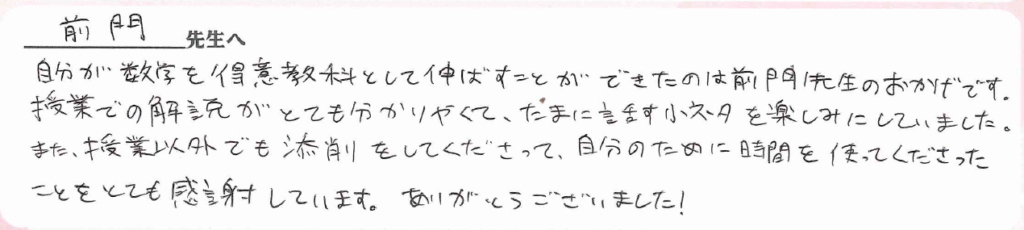 前門 先生へ
自分が数学を得意教科として伸ばすことができたのは前門先生のおかげです。
授業での解説がとても分かりやくて、たまに話す小ネタを楽しみにしていました。
また、授業以外でも添削をしてくださって、自分のために時間を使ってくださった
ことをとても感謝しています。ありがとうございました!